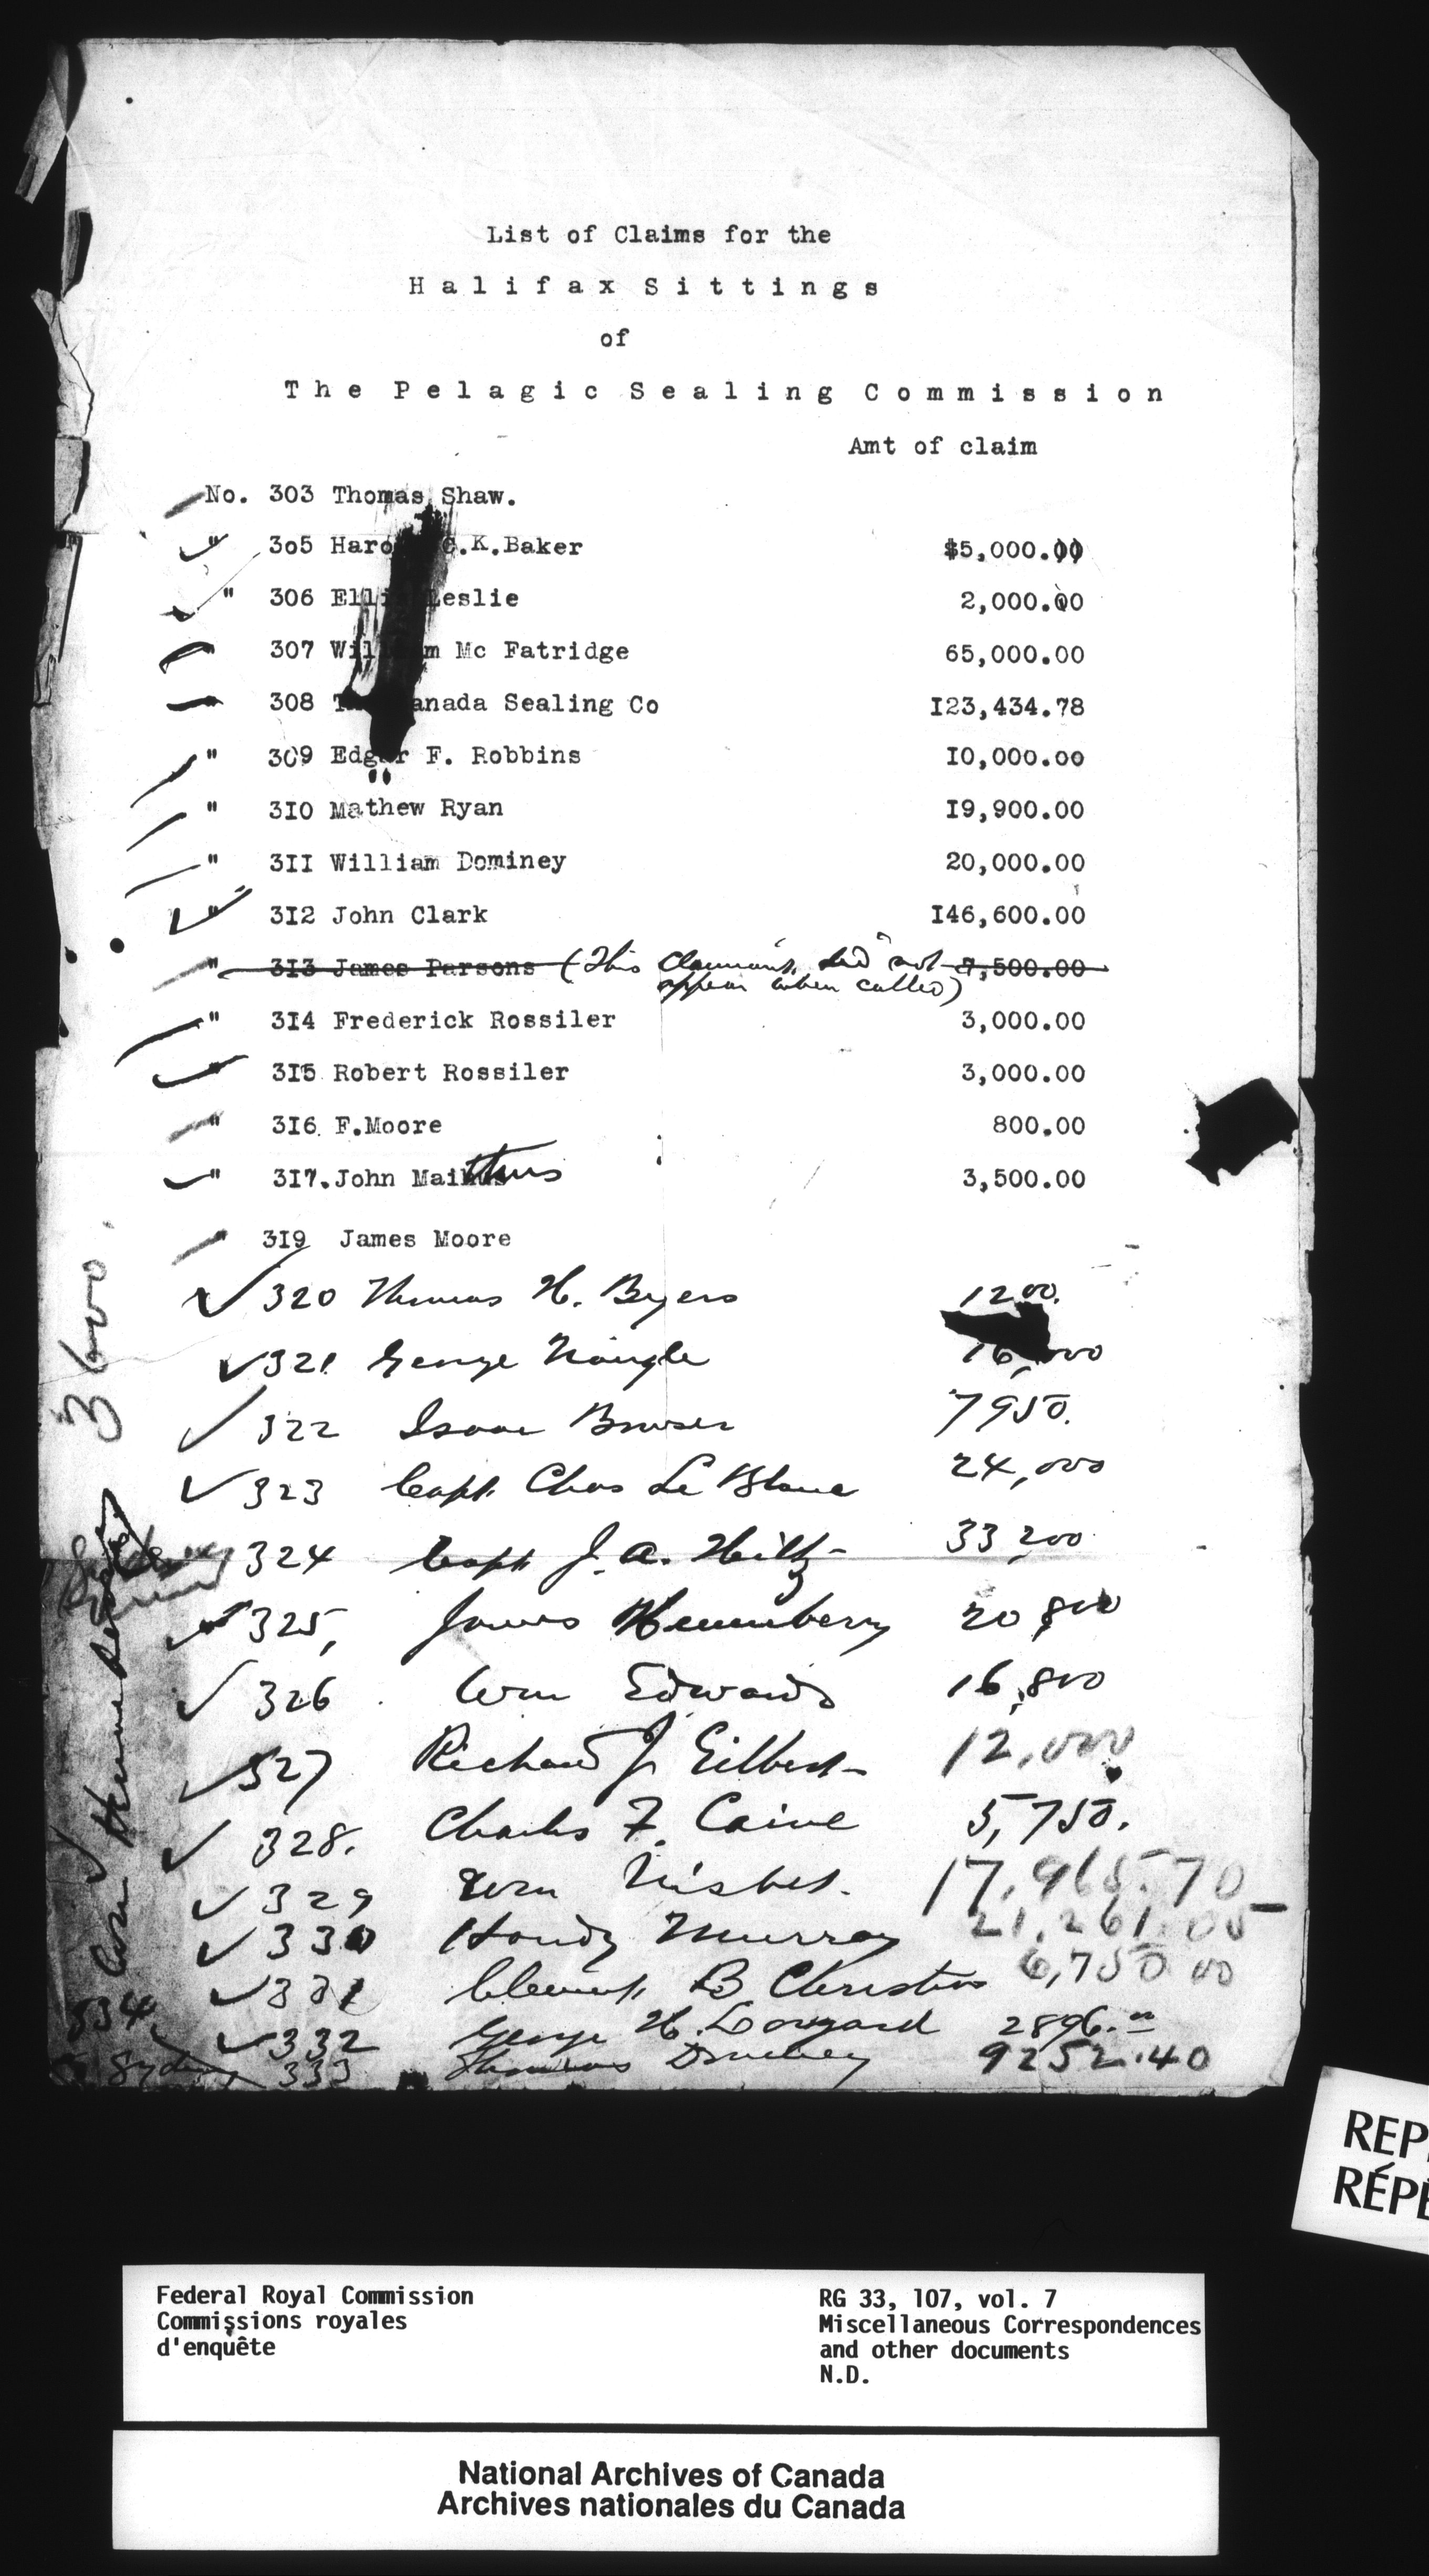 List of Claims for the
Halifax Sittings
of
The Pelagic Sealing Commission
Amt of claim
No. 303 Thomas Shaw.
" 305 Haro C.K.Baker $5,000.00
" 306 Elli Leslie 2,000.00
307 William Mc Fatridge 65,000.00
308 T anada Sealing Co I23,434.78
" 309 Edgar F. Robbins I0,000.00
" 3I0 Mathew Ryan I9,900.00
" 3II William Dominey 20,000.00
" 3I2 John Clark I46,600.00
" 3I3 James Parsons (This Claimant did not 7,500.00
appear when called)
" 3I4 Frederick Rossiler 3,000.00
" 3I5 Robert Rossiler 3,000.00
" 3I6. F.Moore 800.00
" 3I7. John Maithus 3,500.00
" 3I9 James Moore
320 Thomas H. Byers 1200.
321 George Naugle 16,000
322 Isaac Bowser 7950.
323 Capt. Chas Le Blanc 24,000
324 Capt J. A. Hiltz 33,200
325, James Hennberry 20,800
326 Wm Edwards 16,800
327 Richard J. Gilbert 12,000
328. Charles F. Caine 5,750.
329 Wm Nisbet. 17,965.70
330 Handy Murray 21,261.05
331 Clement B Christian 6,750 00
332 George H. Longard 2896.00
333 Thomas Dominey 9252.40
3600.
334
Federal Royal Commission
Commissions royales
d'enquête
RG 33, 107, vol. 7
Miscellaneous Correspondences
and other documents
N.D.
National Archives of Canada
Archives nationales du Canada
REP
RÉPÉ